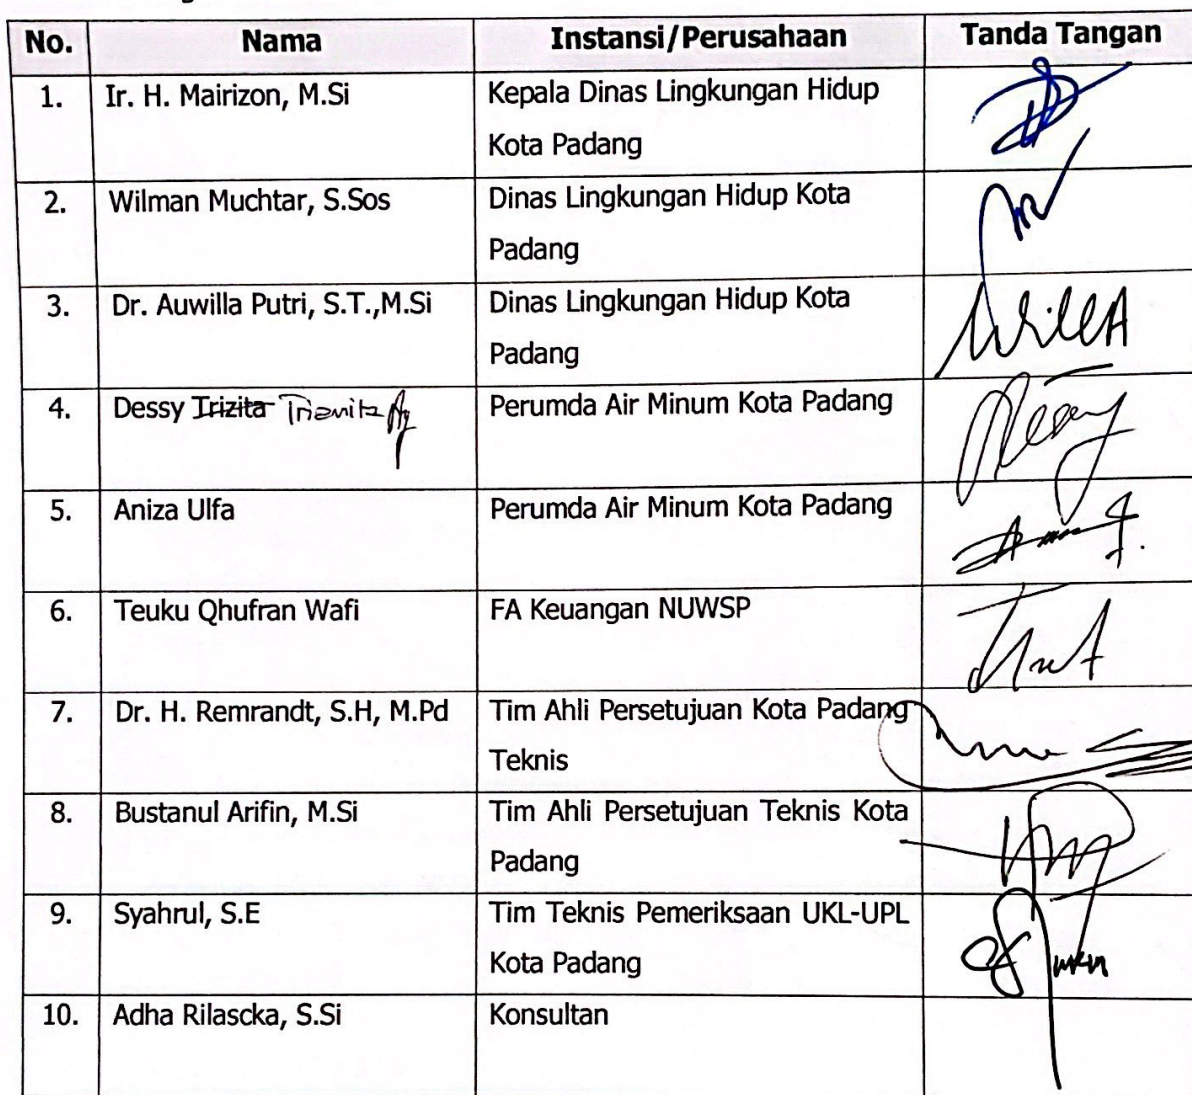 No. Nama Instansi/Perusahaan Tanda Tangan
1. Ir. H. Mairizon, M.Si Kepala Dinas Lingkungan Hidup
Kota Padang
2. Wilman Muchtar, S.Sos Dinas Lingkungan Hidup Kota
Padang
3. Dr. Auwilla Putri, S.T.,M.Si Dinas Lingkungan Hidup Kota
Padang
4. Dessy Irizita Perumda Air Minum Kota Padang
5. Aniza Ulfa Perumda Air Minum Kota Padang
6. Teuku Qhufran Wafi FA Keuangan NUWSP
7. Dr. H. Remrandt, S.H, M.Pd Tim Ahli Persetujuan Kota Padang
Teknis
8. Bustanul Arifin, M.Si Tim Ahli Persetujuan Teknis Kota
Padang
9. Syahrul, S.E Tim Teknis Pemeriksaan UKL-UPL
Kota Padang
10. Adha Rilascka, S.Si Konsultan